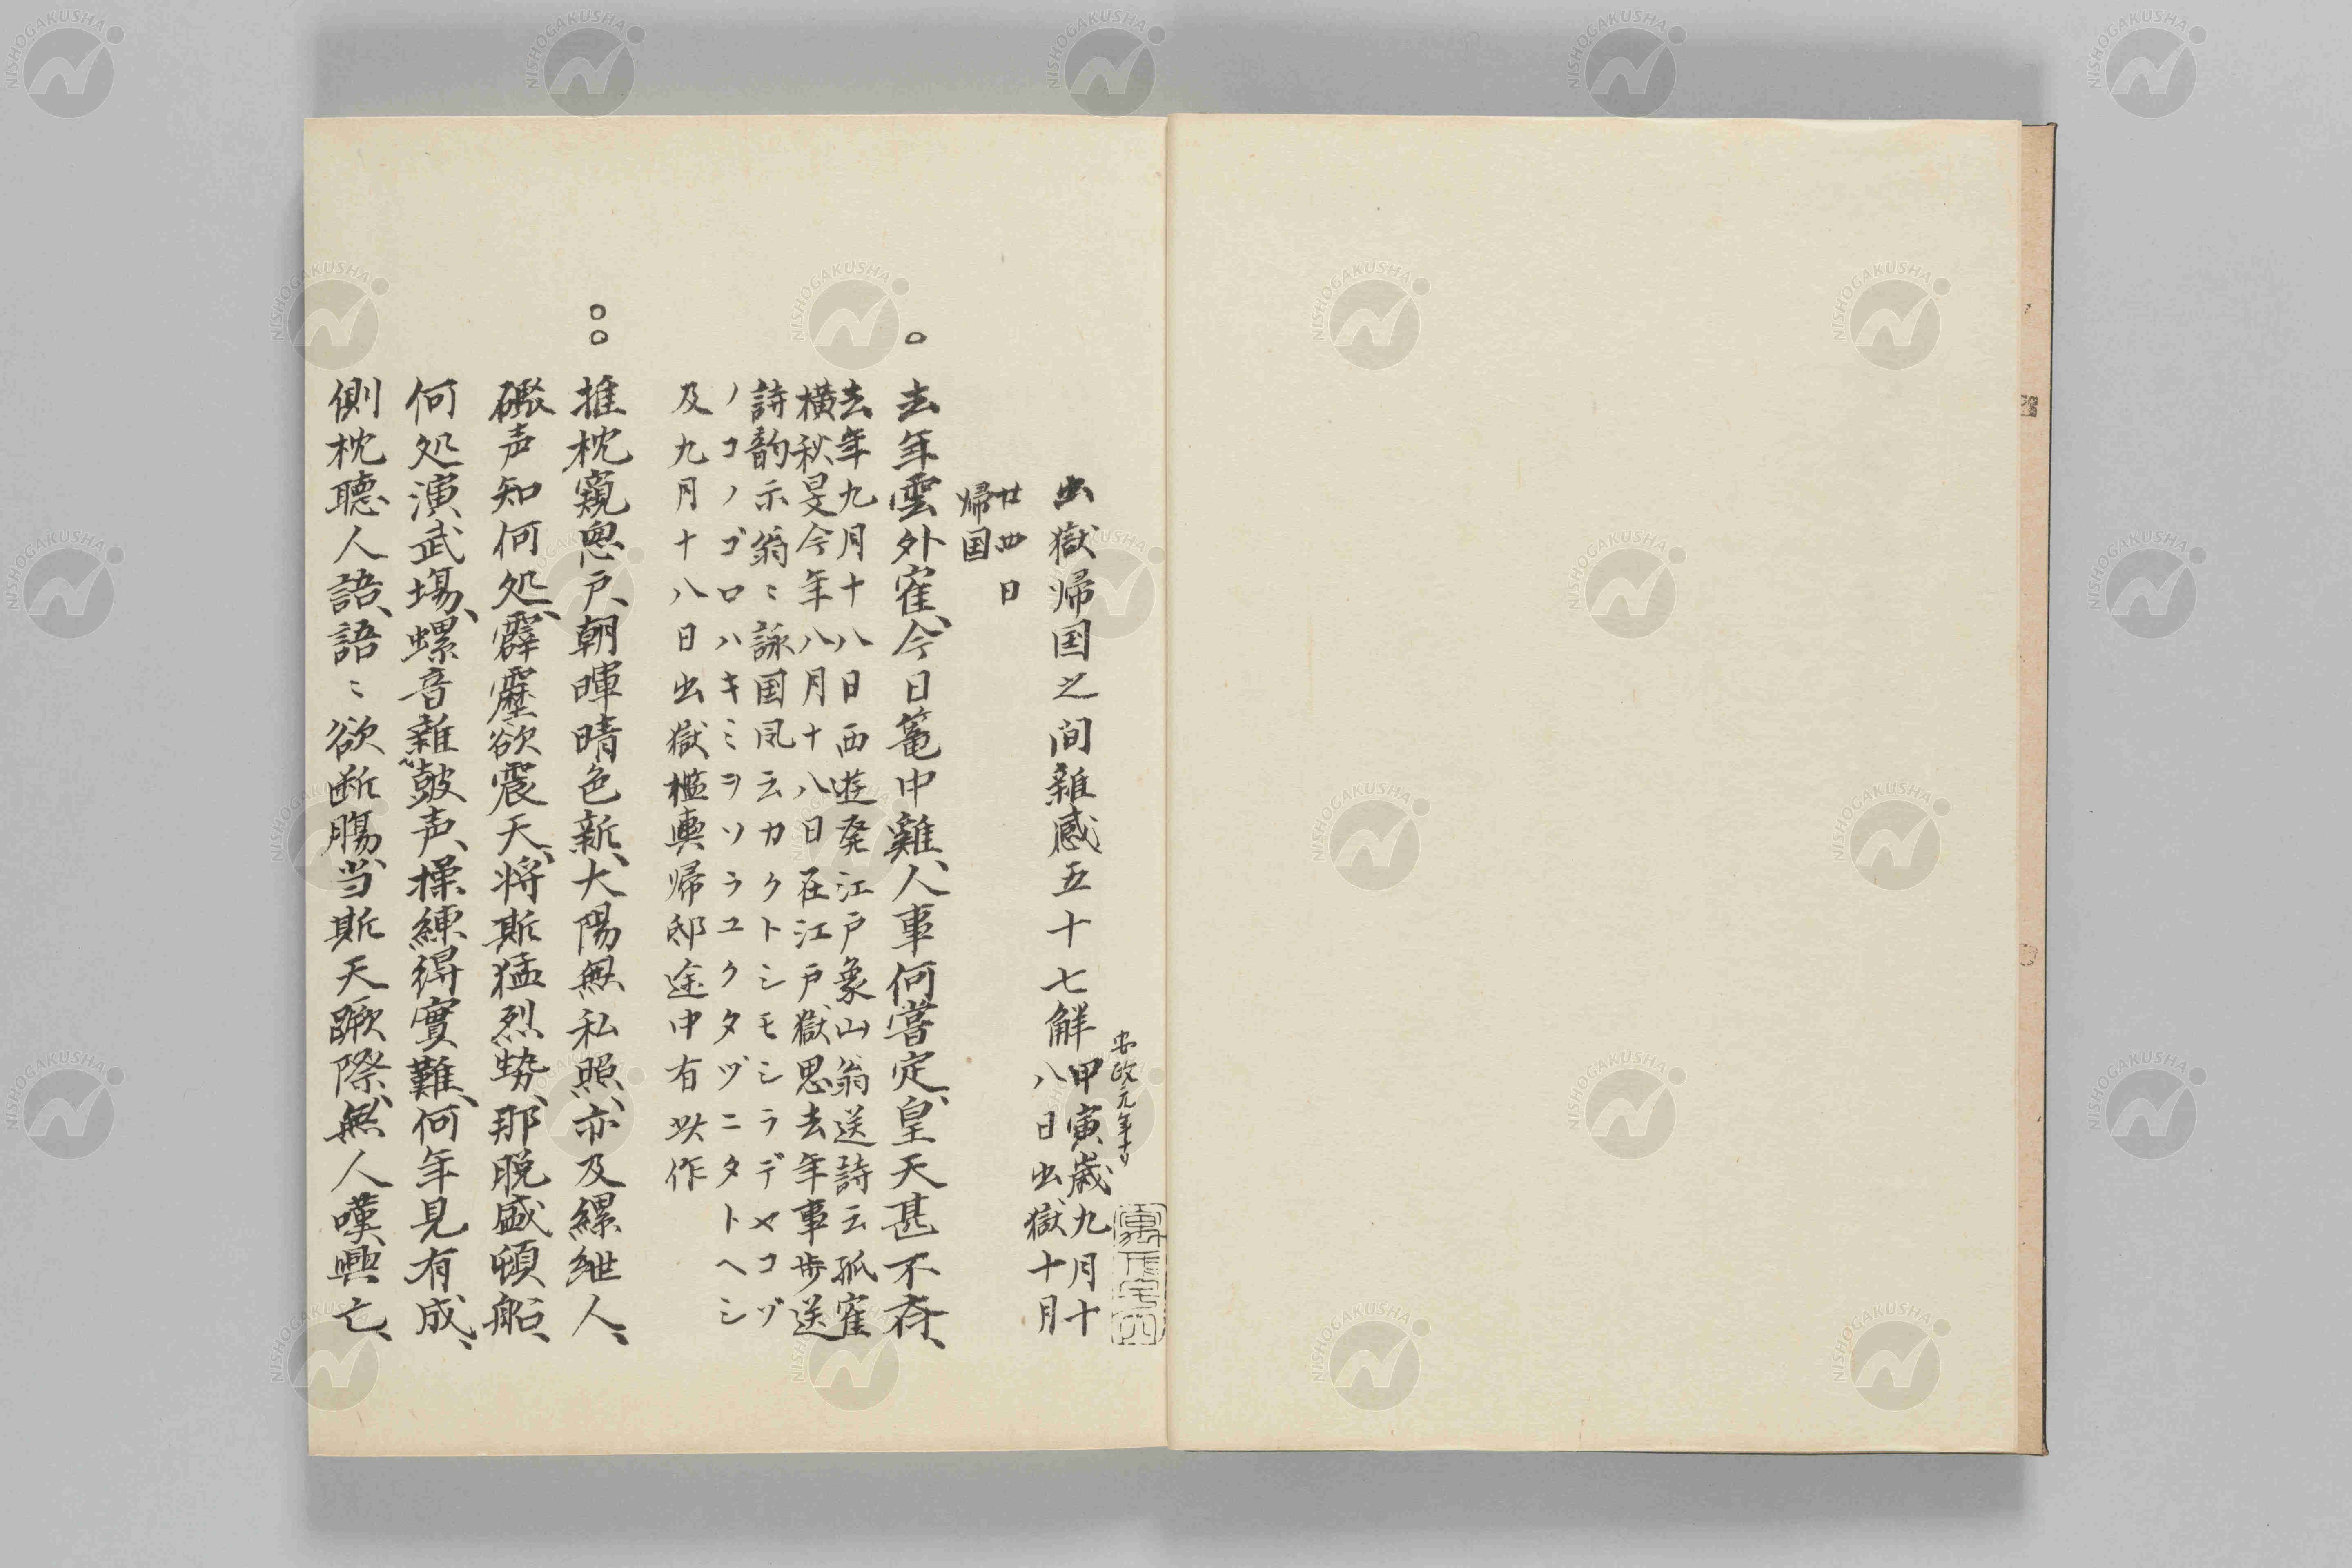 安政元年ナリ
出獄帰国之间雜感五十七解
甲寅歳九月十
八日出獄十月
廿四日
帰国
去年雲外寉、今日篭中雞、人事何嘗定、皇天甚不斉、
去年九月十八日西遊発江戸象山翁送詩云孤寉
横秋旻今年八月十八日在江戸獄思去年事歩送
詩韵示翁〻詠国风云カクトシモシラデメコヅ
ノコノゴロハキミヲソラユクタヅニタトヘシ
及九月十八日出獄檻輿帰邸途中有以作
推枕窺窻戸、朝暉晴色新、大陽無私照、亦及縲紲人、
礮声知何処、霹靂欲震天、将斯猛烈勢、那脱盛頓船、
何処演武場、螺音雜皷声、操練得實難、何年見有成、
側枕聴人語、語〻欲断腸、当斯天蹶際、無人嘆興亡、
NISHOGAKUSHA